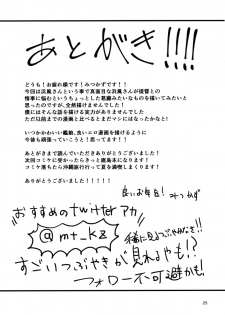 あとがき!!!!
どうも！お疲れ様です！みつかずです！！
今回は浜風さんという事で真面目な浜風さんが提督との
情事に悩むというちょっとした葛藤みたいなものを描いてみたいと
思ったのですが、全然描けませんでした！
僕にはそんな話を描ける実力がありませんでした！
ただ以前までの漫画と比べるとまだマシにはなったかなと！
いつかかわいい艦娘、良いエロ漫画を描けるように
今後も頑張っていこうと！思ってます！！
あとがきまで読んでいただきありがとうございました！
次回コミケに受かったらきっと鹿島本になります！
コミケ落ちたら沖縄旅行行って夏を満喫しまーす！
ありがとうございました！！！！！
良いお年を！ みつかず
おすすめのtwitterアカ
@mt_kz
稀に見るつぶやかなさ!!
すごいつぶやきが見れるやも!!?
フォロー不可避かも。
25